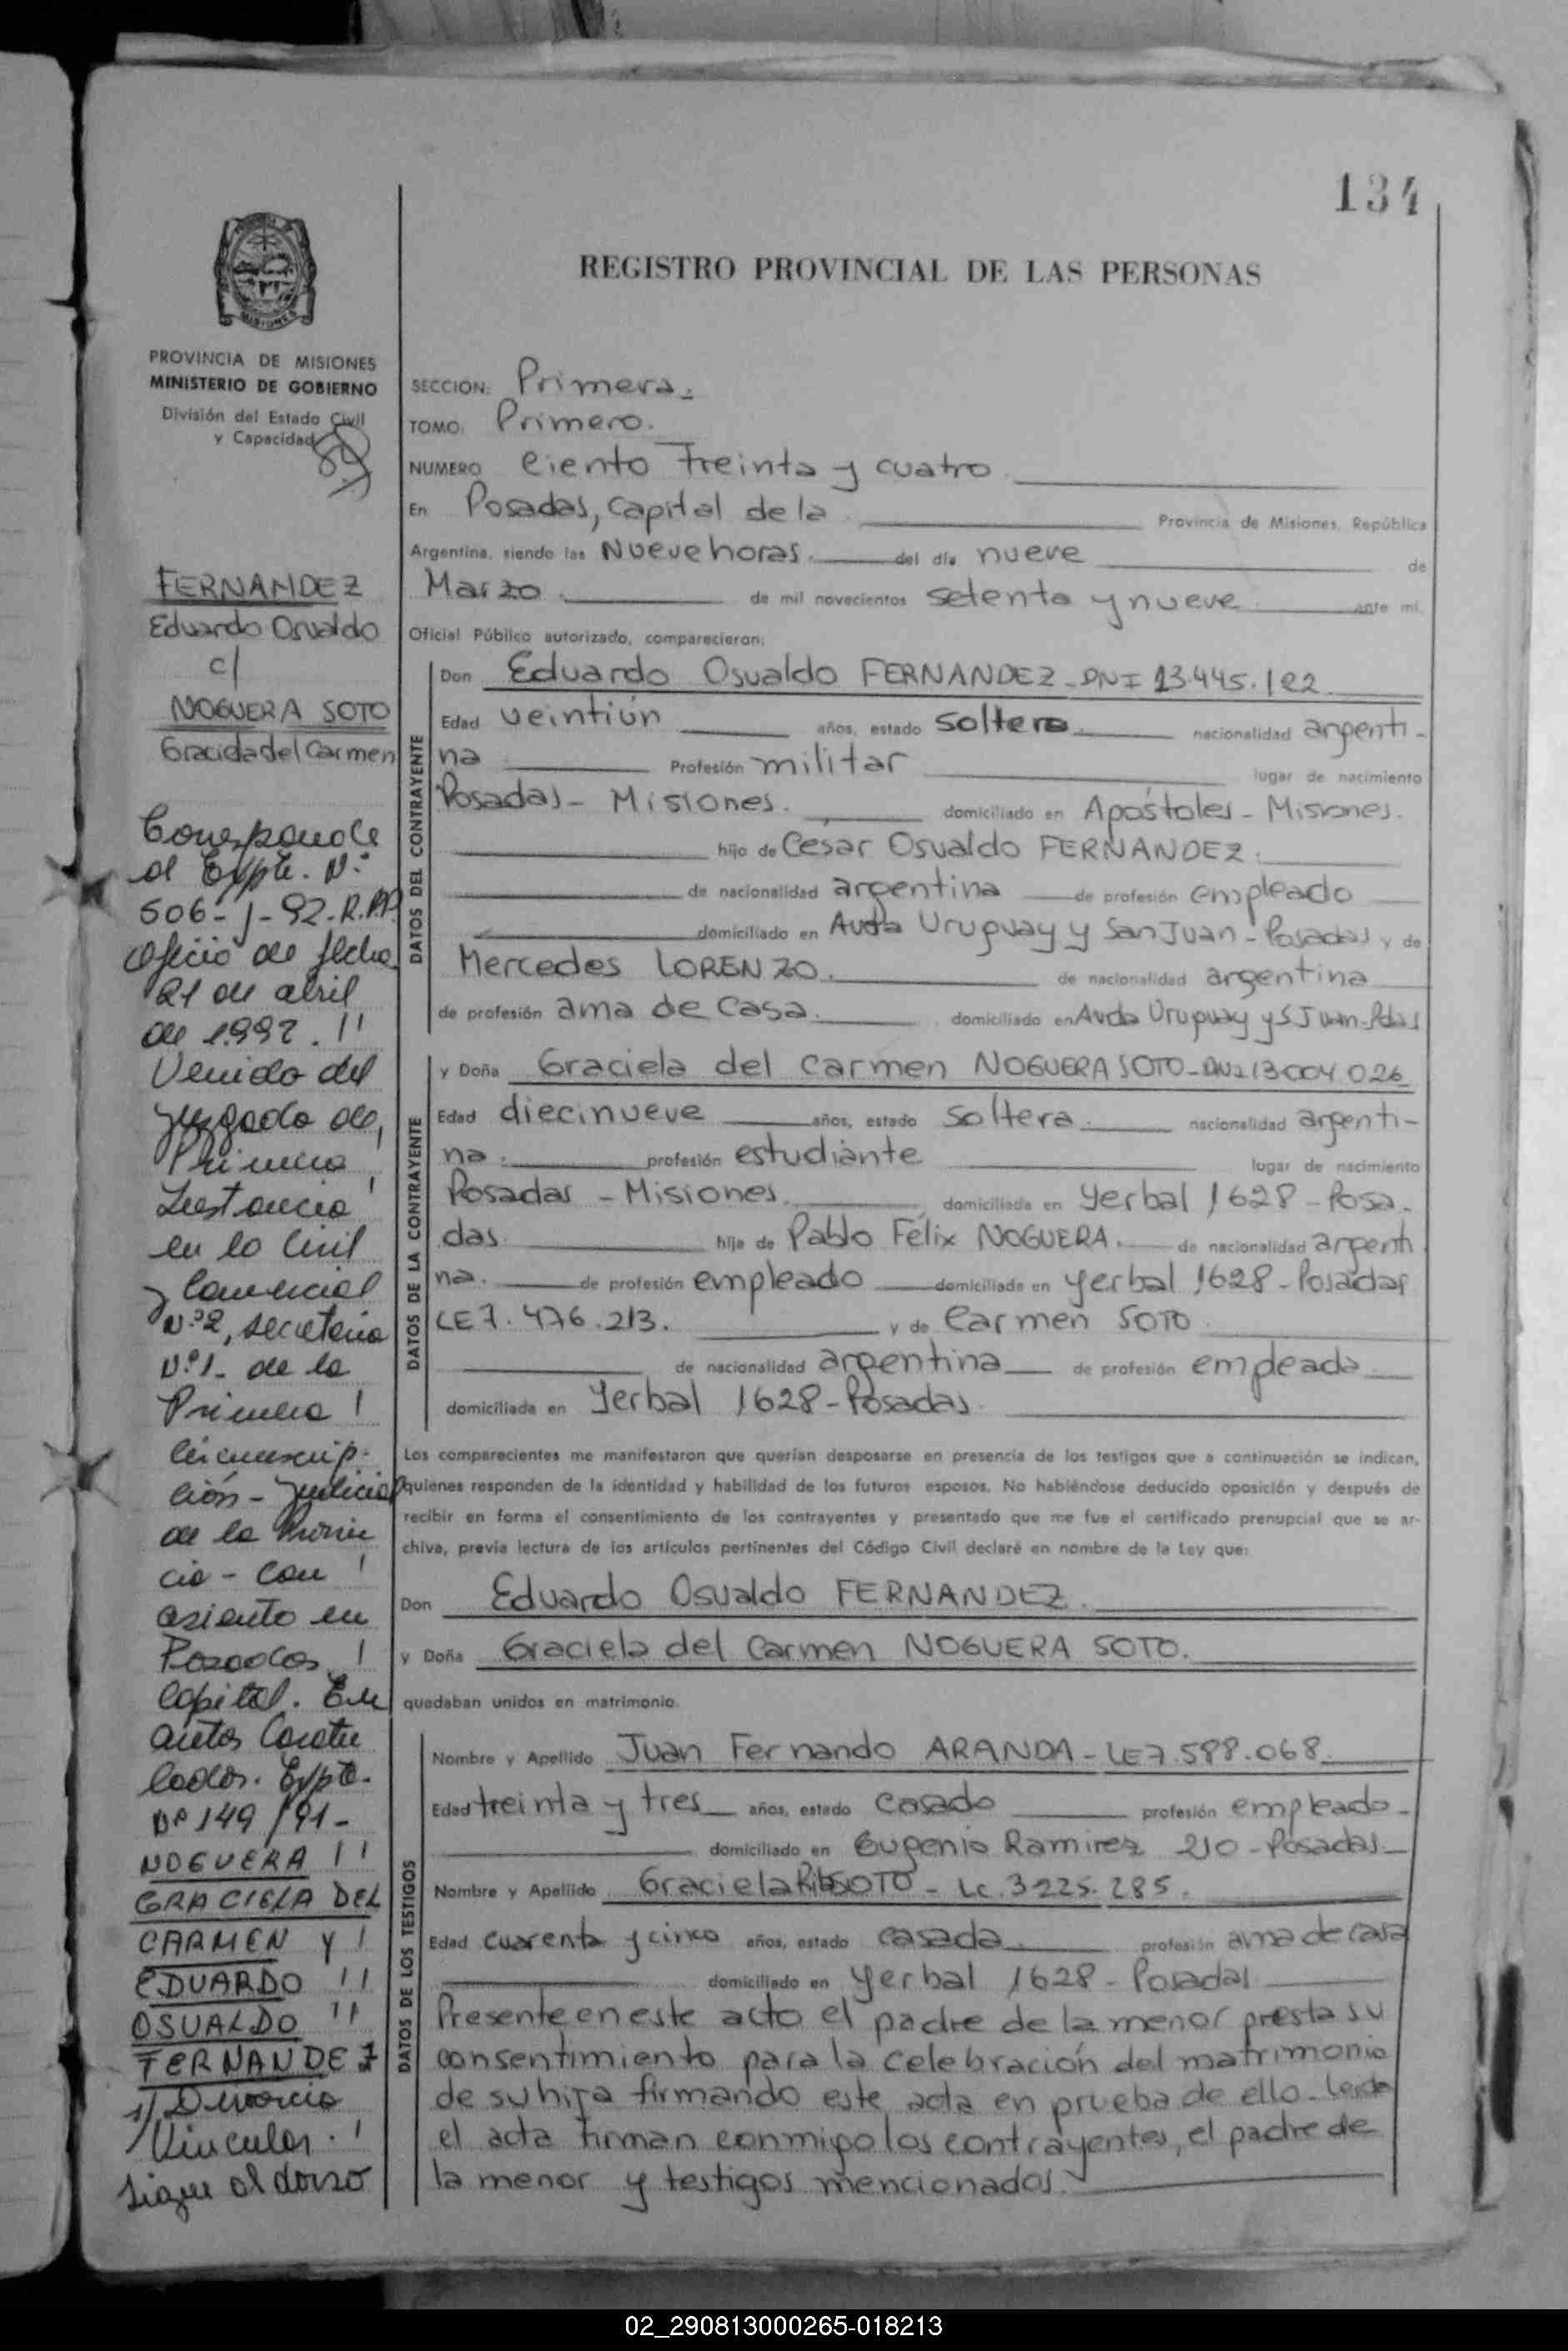 134
REGISTRO PROVINCIAL DE LAS PERSONAS
MISIONES
PROVINCIA DE MISIONES
MINISTERIO DE GOBIERNO
División del Estado Civil
y Capacidad
FERNANDEZ
Eduardo Osvaldo
c/
NOGUERA SOTO
Graciela del Carmen
Corresponde
al Expte. N°
506-J-92-R.P.P.
Oficio de fecha
21 de abril
de 1.992. !!
Venido del
Juzgado de
Primera
Instancia
en lo Civil
y Comercial
N°2, secretaria
N°1- de la
Primera !
Circunscrip-
ción - Judicial
de la Provin
cia - con !
asiento en
Posadas !
Capital. En
autos Caratu
lados. Expte.
N° 149/91-
NOGUERA !!
GRACIELA DEL
CARMEN Y !
EDUARDO !!
OSVALDO !!
FERNANDEZ
s/ Divorcio
Vincular. !
Sigue al dorso
SECCION: Primera.
TOMO: Primero.
NUMERO ciento treinta y cuatro
En Posadas, Capital de la Provincia de Misiones, República
Argentina, siendo las Nueve horas. del día nueve de
Marzo de mil novecientos setenta y nueve ante mí,
Oficial Público autorizado, comparecieron:
DATOS DEL CONTRAYENTE
Don Eduardo Osvaldo FERNANDEZ - DNI 13.445.122
Edad veintiún años, estado soltero nacionalidad argenti-
na Profesión militar lugar de nacimiento
Posadas - Misiones. domiciliado en Apóstoles - Misiones.
hijo de César Osvaldo FERNANDEZ.
de nacionalidad argentina de profesión empleado
domiciliado en Avda Uruguay y San Juan - Posadas y de
Mercedes LORENZO. de nacionalidad argentina
de profesión ama de casa. domiciliado en Avda Uruguay y S Juan-Pdas
DATOS DE LA CONTRAYENTE
y Doña Graciela del Carmen NOGUERA SOTO - DNI 13004 026
Edad diecinueve años, estado soltera nacionalidad argenti-
na. profesión estudiante lugar de nacimiento
Posadas - Misiones. domiciliada en Yerbal 1628 - Posa-
das. hija de Pablo Félix NOGUERA. de nacionalidad argenti
na. de profesión empleado domiciliado en yerbal 1628 - Posadas
LE 7.476.213. y de Carmen SOTO
de nacionalidad argentina de profesión empleada
domiciliada en Yerbal 1628 - Posadas.
Los comparecientes me manifestaron que querían desposarse en presencia de los testigos que a continuación se indican,
quienes responden de la identidad y habilidad de los futuros esposos. No habiéndose deducido oposición y después de
recibir en forma el consentimiento de los contrayentes y presentado que me fue el certificado prenupcial que se ar-
chiva, previa lectura de los artículos pertinentes del Código Civil declaré en nombre de la Ley que:
Don Eduardo Osvaldo FERNANDEZ.
y Doña Graciela del Carmen NOGUERA SOTO.
quedaban unidos en matrimonio.
DATOS DE LOS TESTIGOS
Nombre y Apellido Juan Fernando ARANDA - LE 7.588.068.
Edad treinta y tres años, estado casado profesión empleado-
domiciliado en Eugenio Ramirez 210 - Posadas.
Nombre y Apellido Graciela SOTO - LC. 3225.285.
Edad cuarenta y cinco años, estado casada profesión ama de casa
domiciliado en Yerbal 1628 - Posadas
Presente en este acto el padre de la menor presta su
consentimiento para la celebración del matrimonio
de su hija firmando este acta en prueba de ello - Leida
el acta firman conmigo los contrayentes, el padre de
la menor y testigos mencionados.
02_290813000265-018213